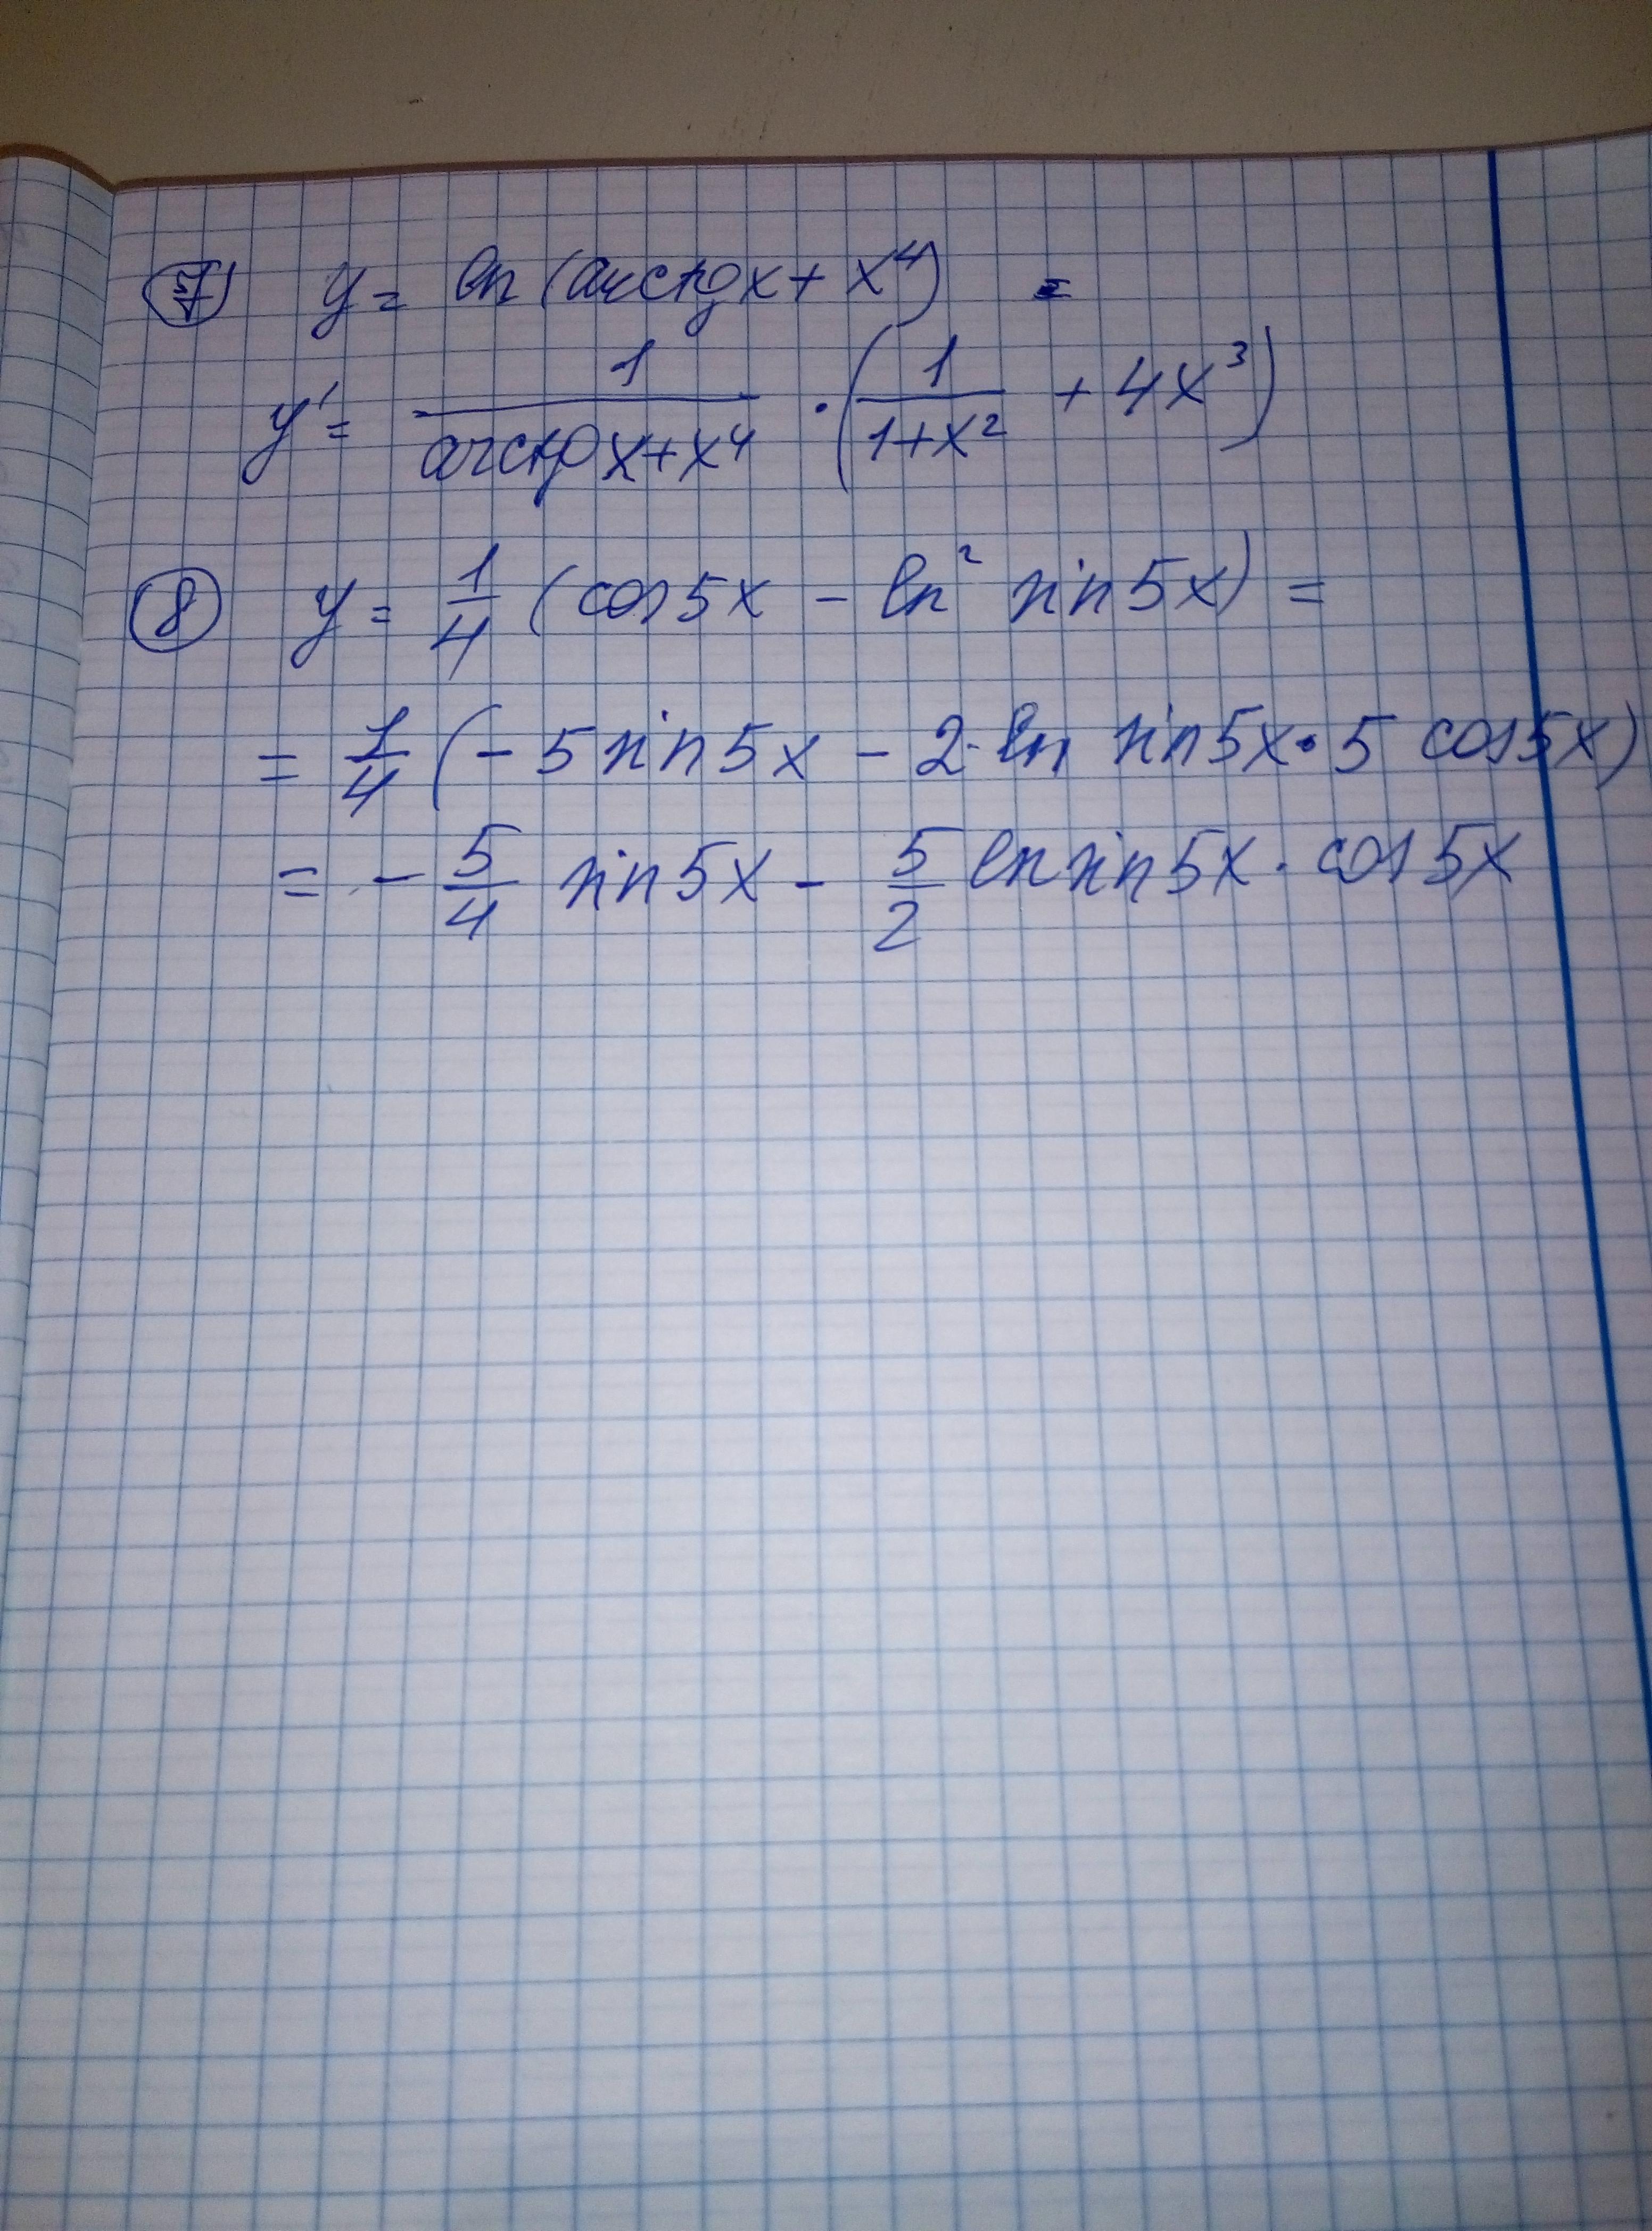 ⑦ y = ln (arctg x + x⁴) =
y' = 1/(arctg x + x⁴) · (1/(1+x²) + 4x³)
⑧ y = 1/4 (cos 5x − ln² sin 5x) =
= 1/4 (− 5 sin 5x − 2 · ln sin 5x · 5 cos 5x)
= − 5/4 sin 5x − 5/2 ln sin 5x · cos 5x